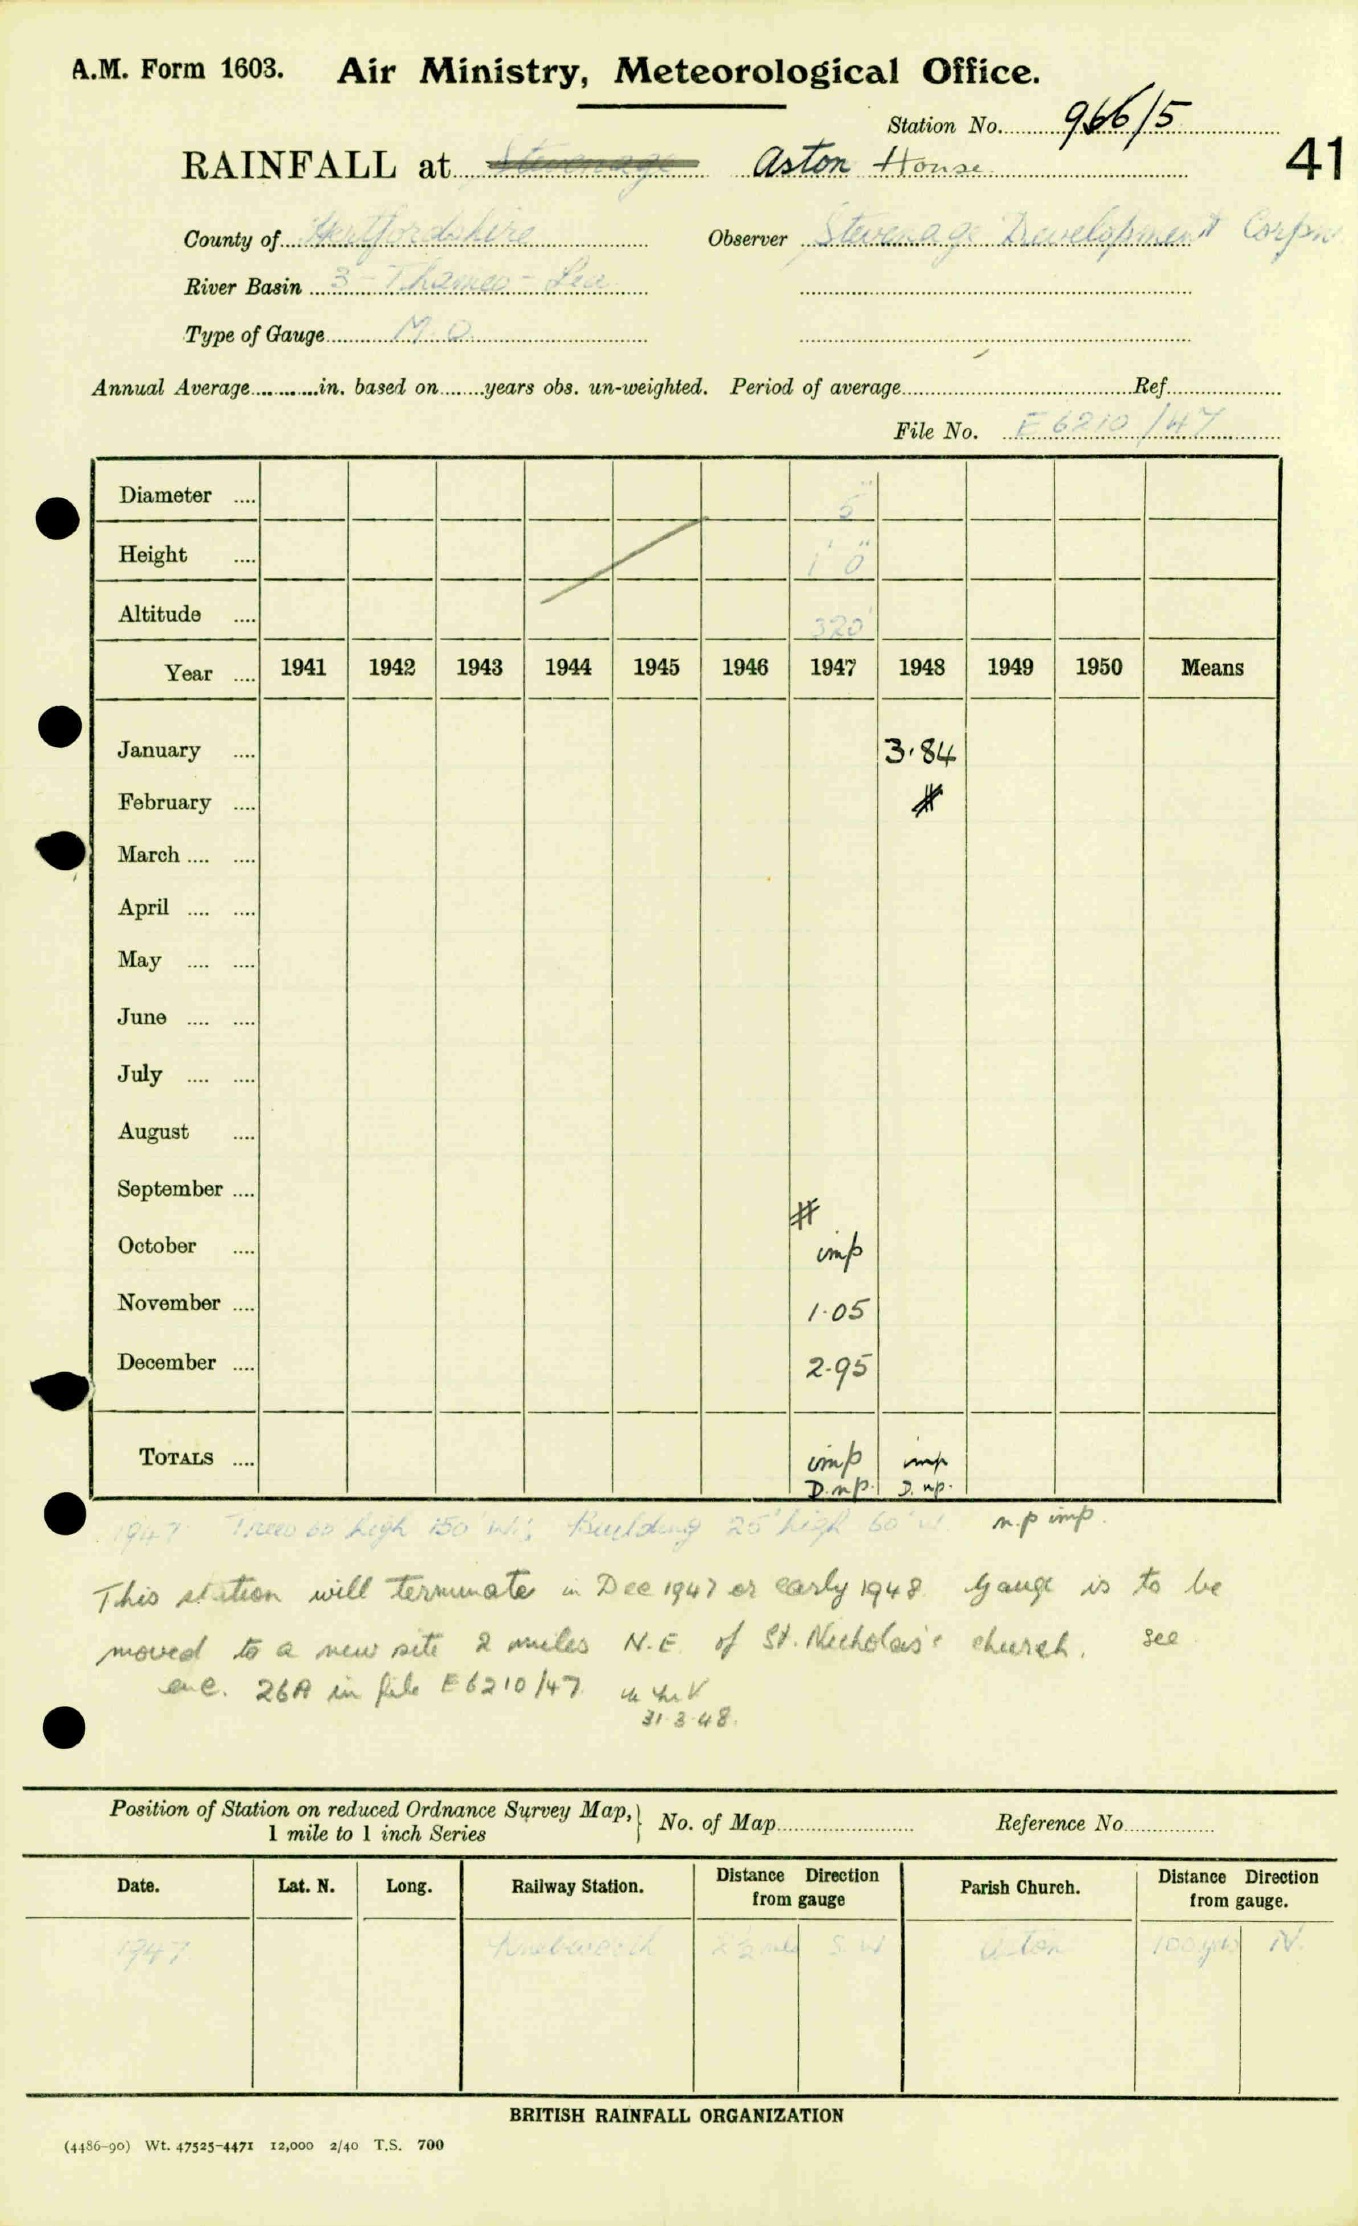 A.M. Form 1603. Air Ministry, Meteorological Office.
Station No. 966/5
RAINFALL at Stevenage Aston House 41
County of Hertfordshire Observer Stevenage Development Corpn
River Basin 3 - Thames - Lea
Type of Gauge M.O.
Annual Average in. based on years obs. un-weighted. Period of average Ref.
File No. E 6210/47
Diameter .... 5"
Height .... 1' 0"
Altitude .... 320'
Year .... 1941 1942 1943 1944 1945 1946 1947 1948 1949 1950 Means
January .... 3.84
February .... #
March .... ....
April .... ....
May .... ....
June .... ....
July .... ....
August ....
September ....
#
October .... imp
November .... 1.05
December .... 2.95
TOTALS .... imp imp
D.n.p. D.n.p.
1947 Trees 60' high 150' W.; Building 25' high 60' W. n.p imp.
This station will terminate in Dec 1947 or early 1948. Gauge is to be
moved to a new site 2 miles N.E. of St. Nicholas's church. see
enc. 26A in file E6210/47.
31.3.48.
Position of Station on reduced Ordnance Survey Map, } No. of Map Reference No.
1 mile to 1 inch Series
Date. Lat. N. Long. Railway Station. Distance Direction from gauge Parish Church. Distance Direction from gauge.
1947 Knebworth 2½ mls S.W Aston 100 yds N.
BRITISH RAINFALL ORGANIZATION
(4486-90) Wt. 47525-4471 12,000 2/40 T.S. 700